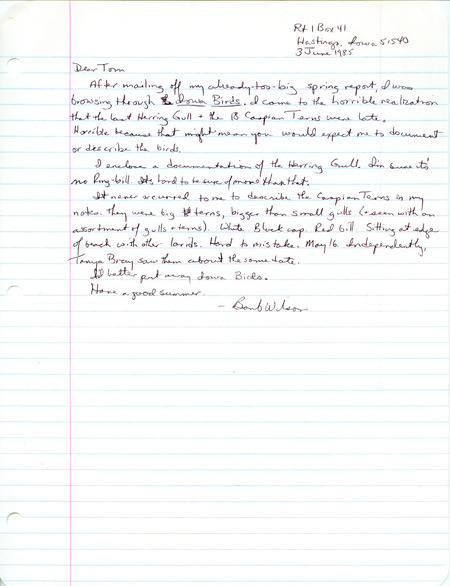 Rt 1 Box 41
Hastings, Iowa 51540
3 June 1985
Dear Tom
After mailing off my already-too-big spring report, I was
browsing through Iowa Birds. I came to the horrible realization
that the last Herring Gull + the 18 Caspian Terns were late.
Horrible because that might mean you would expect me to document
or describe the birds.
I enclose a documentation of the Herring Gull. I'm sure it's
no Ring-bill. It's hard to be sure of more than that.
It never occurred to me to describe the Caspian Terns in my
notes. They were big terns, bigger than small gulls (+ seen with an
assortment of gulls + terns). White. Black cap. Red bill. Sitting at edge
of beach with other larids. Hard to mistake. May 16. Independently,
Tanya Bray saw them about the same date.
I'd better put away Iowa Birds.
Have a good summer.
- Barb Wilson